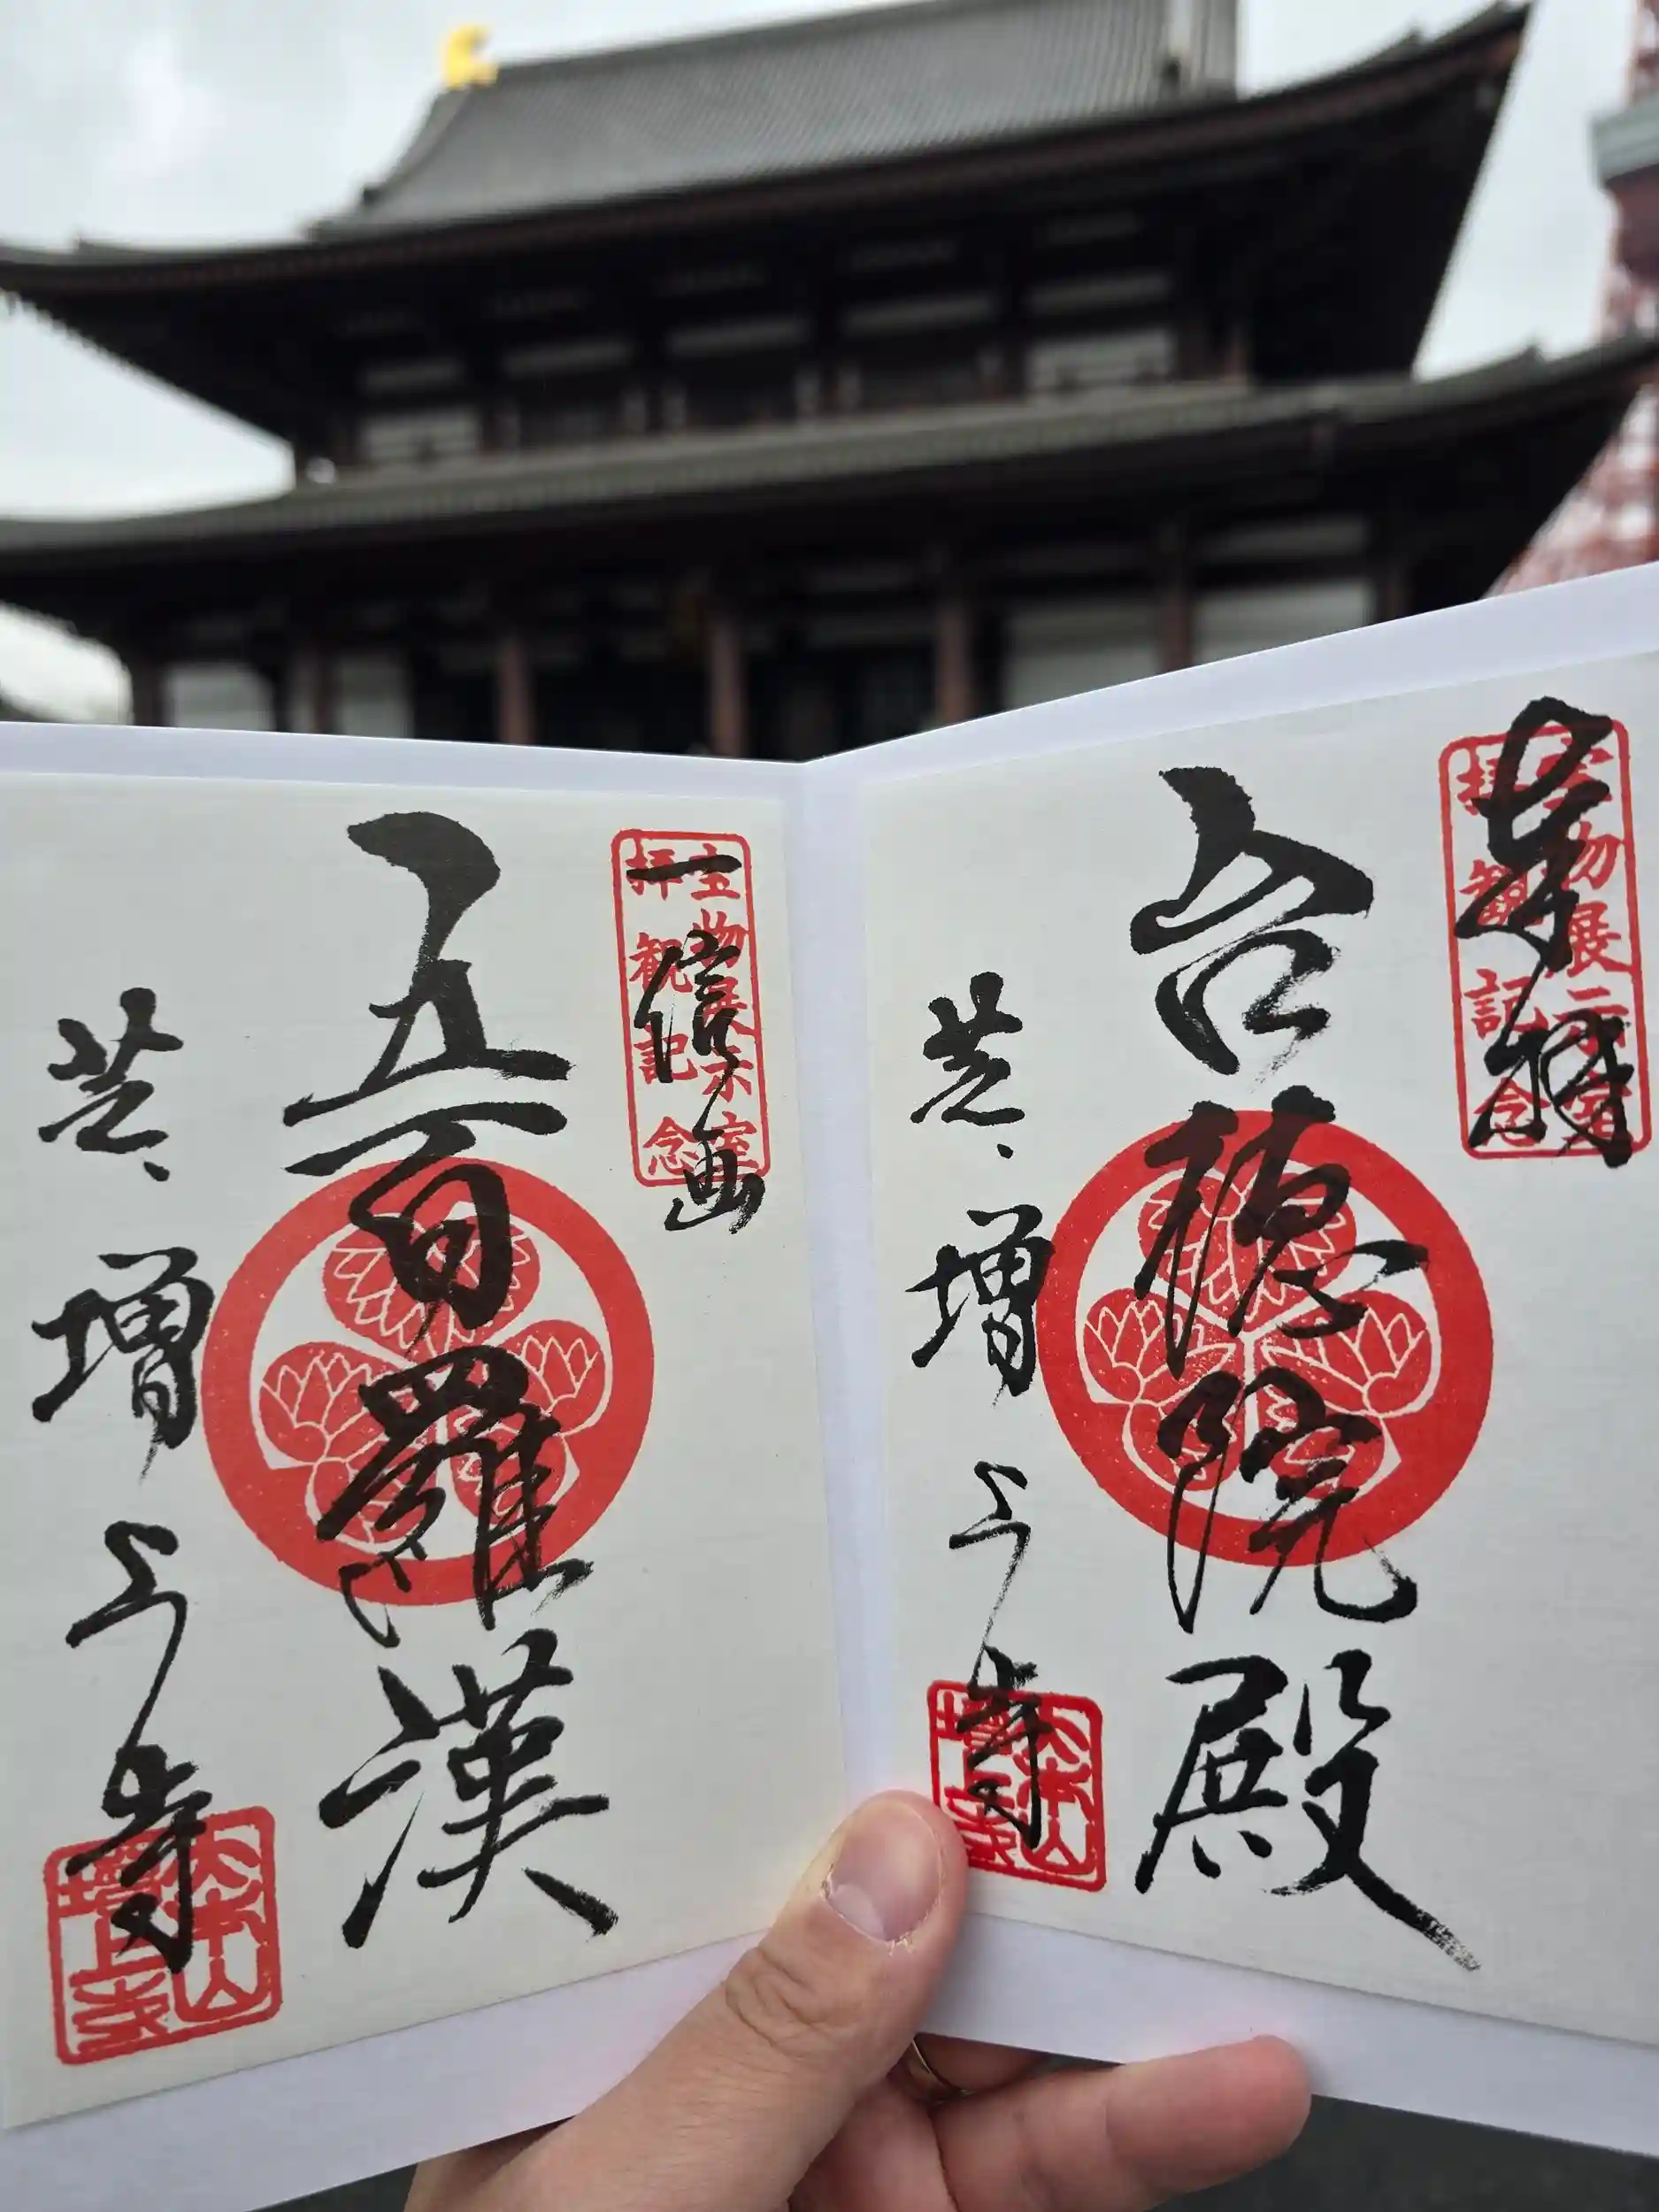 奉拝
宝物展示室
拝観記念
台徳院殿
芝、増上寺
大本山
増上寺
一信画
宝物展示室
拝観記念
五百羅漢
芝、増上寺
大本山
増上寺